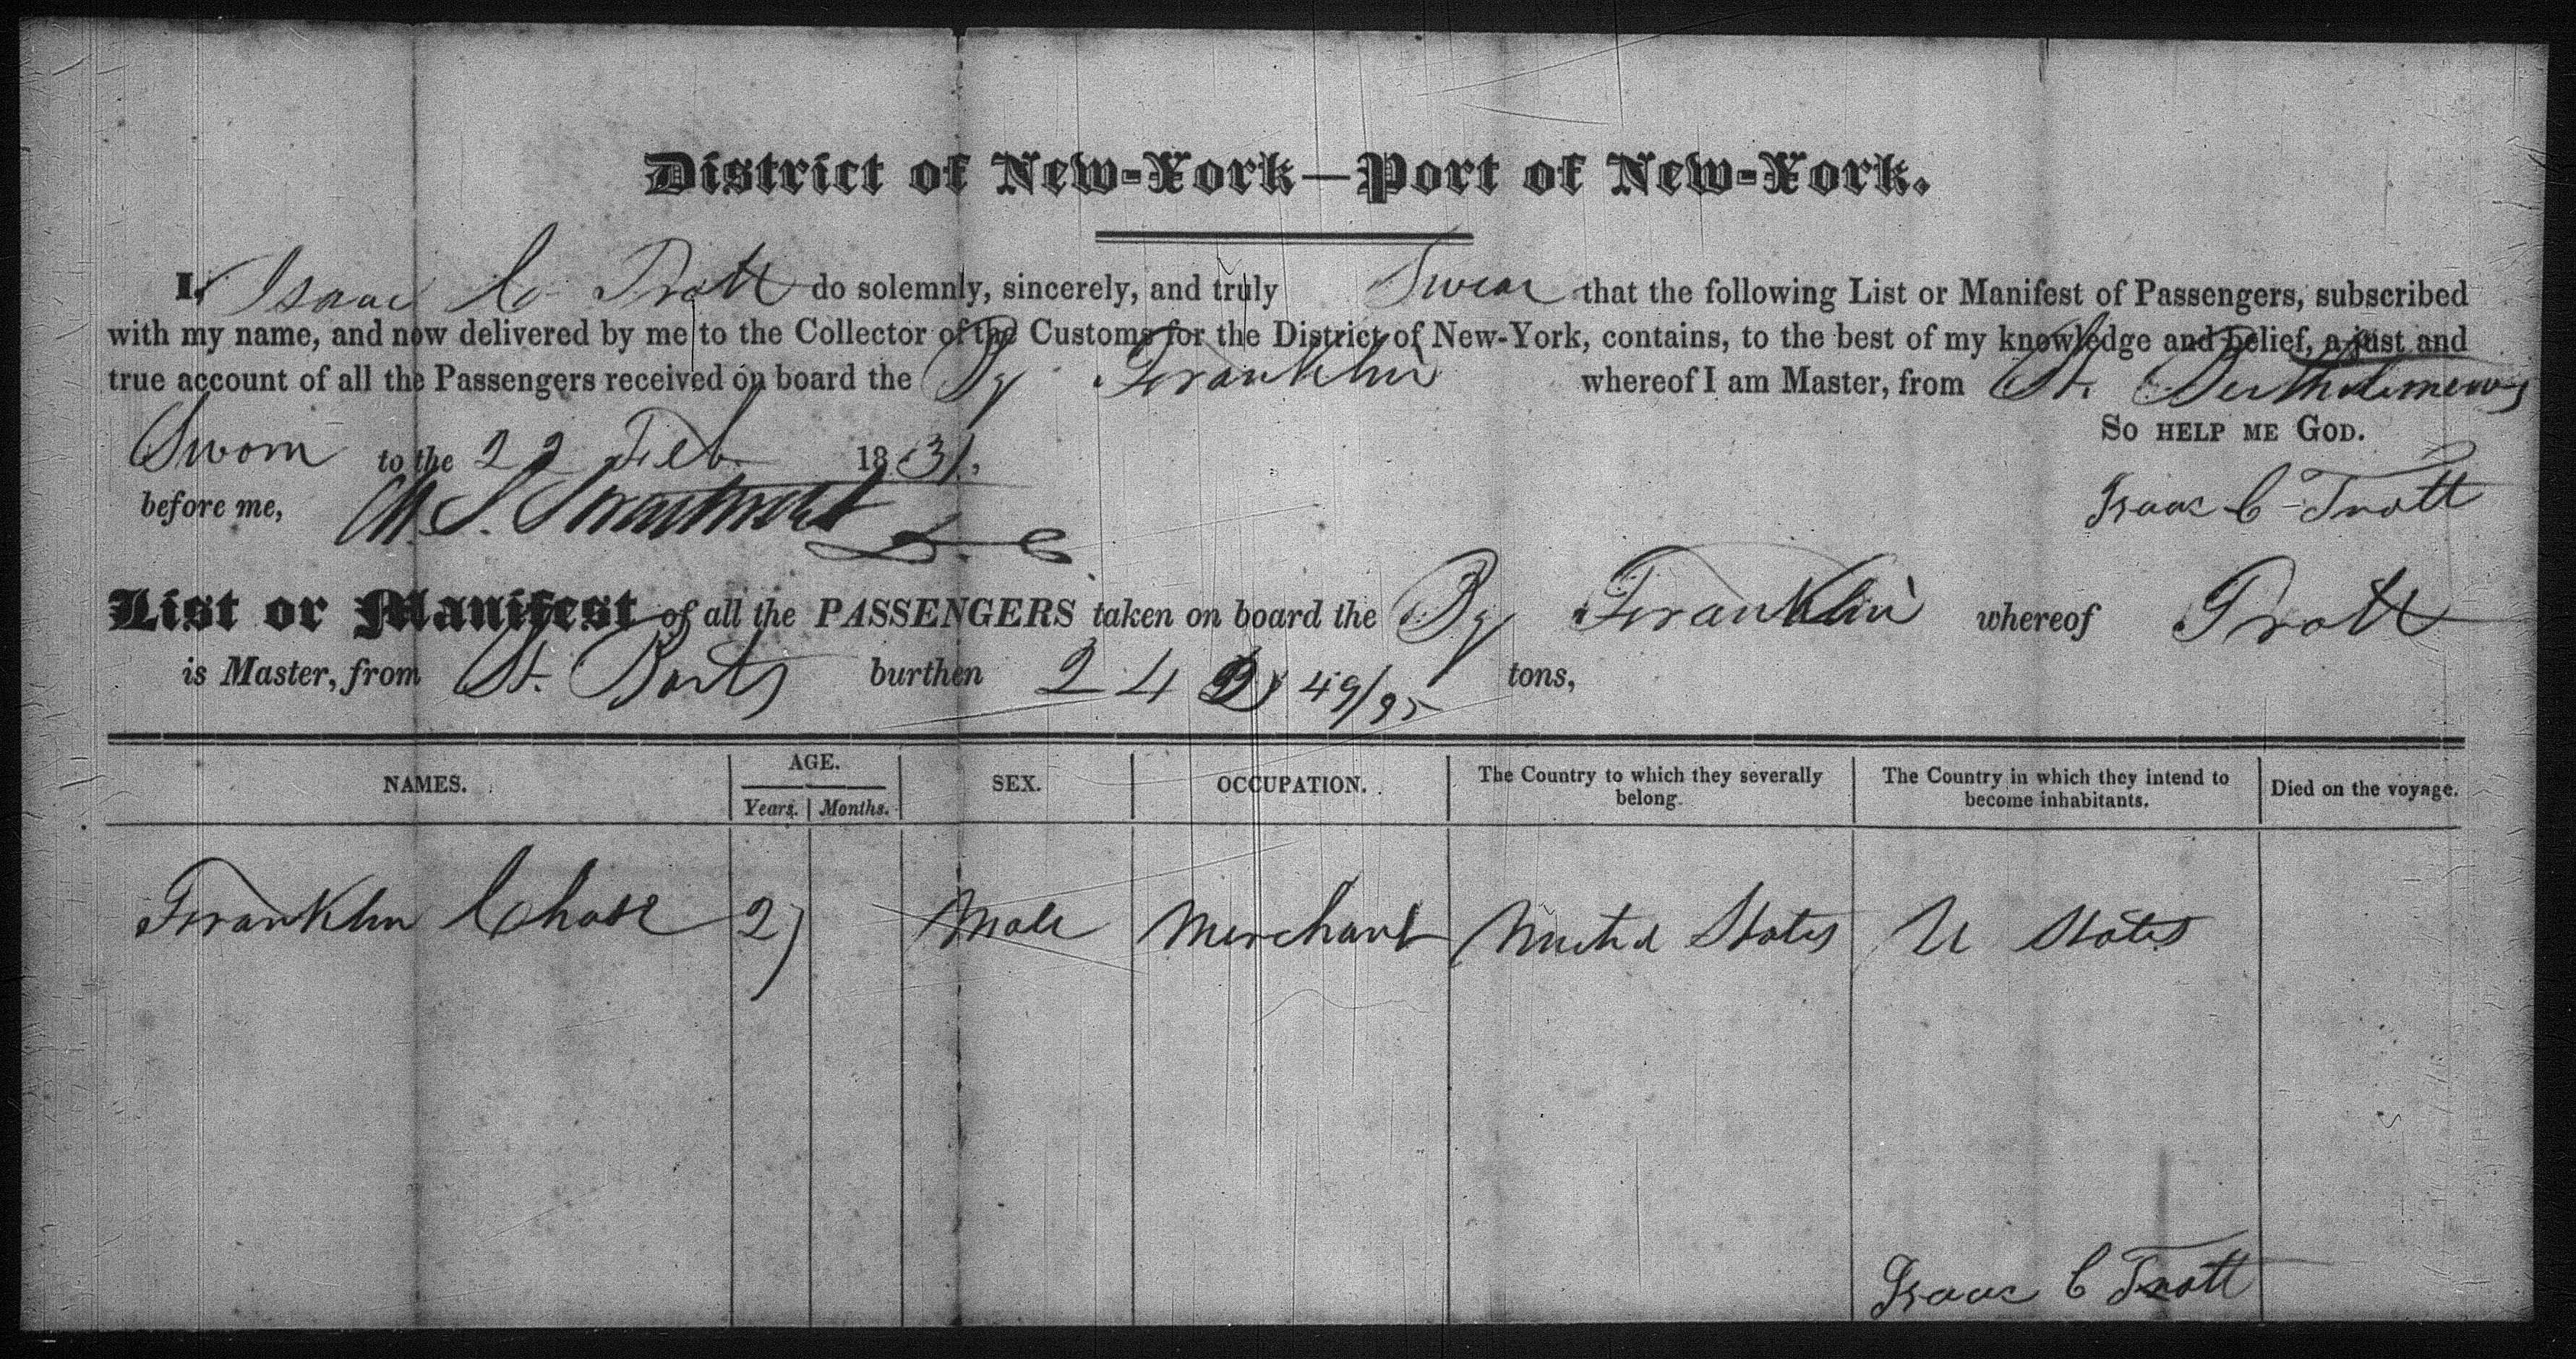 District of New-York—Port of New-York.
I, Isaac C Trott do solemnly, sincerely, and truly Swear that the following List or Manifest of Passengers, subscribed
with my name, and now delivered by me to the Collector of the Customs for the District of New-York, contains, to the best of my knowledge and belief, a just and
true account of all the Passengers received on board the Bg Franklin whereof I am Master, from St. Bartholomews
So help me God.
Sworn to the 22 Feb 1831.
before me,
Isaac C Trott
List or Manifest of all the PASSENGERS taken on board the Bg Franklin whereof Trott
is Master, from St. Barts burthen 242 49/95 tons,
NAMES. AGE. Years. Months. SEX. OCCUPATION. The Country to which they severally belong. The Country in which they intend to become inhabitants. Died on the voyage.
Franklin Chase 27 Male Merchant United States U States
Isaac C Trott